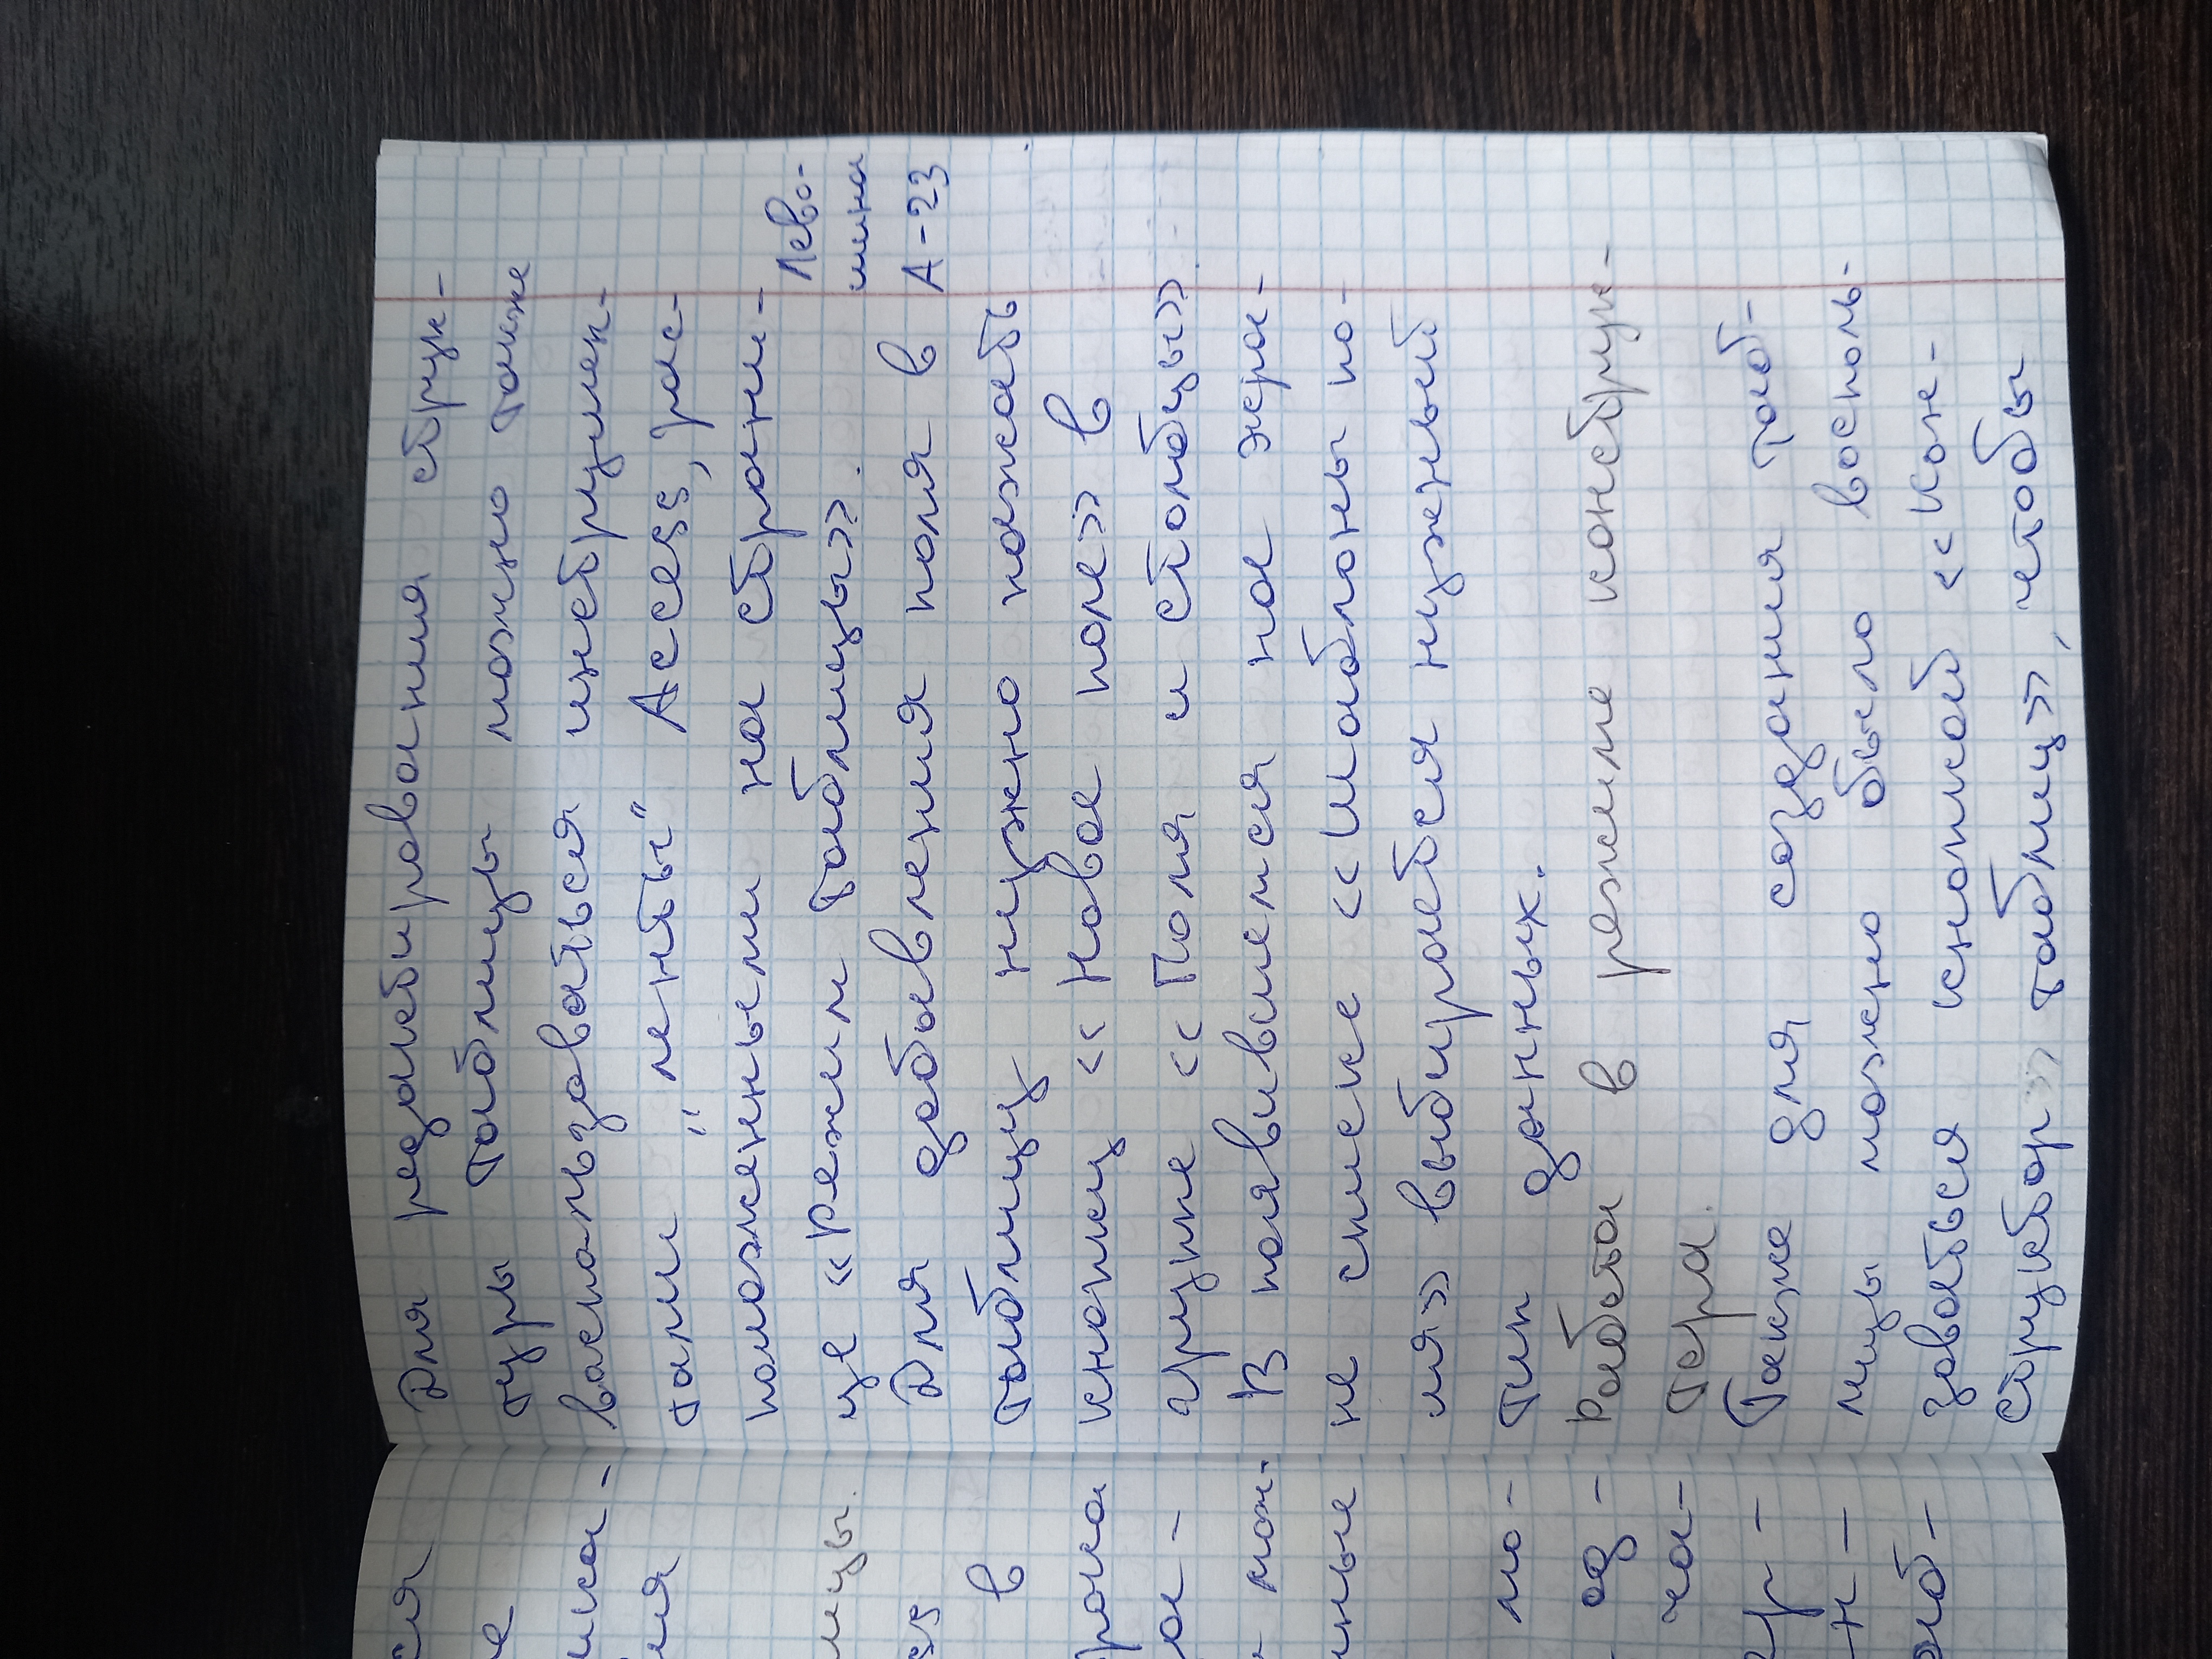 Для редактирования струк-
туры таблицы можно также
воспользоваться инструмен-
тами "ленты" Access, рас-
положенными на страни-
це «Режим таблицы».
Лево-
шина
А-23
Для добавления поля в
таблицу нужно нажать
кнопку «Новое поле» в
группе «Поля и столбцы».
В появившемся на экра-
не списке «Шаблоны по-
ля» выбирается нужный
тип данных.
Работа в режиме конструк-
тера.
Также для создания таб-
лицы можно было восполь-
зоваться кнопкой «Кон-
структор» таблиц», чтобы
ся
е
ия
лицы.
ss
в
рома
ра-
мож-
нные
ло-
ед-
ча-
ер-
н-
таб-